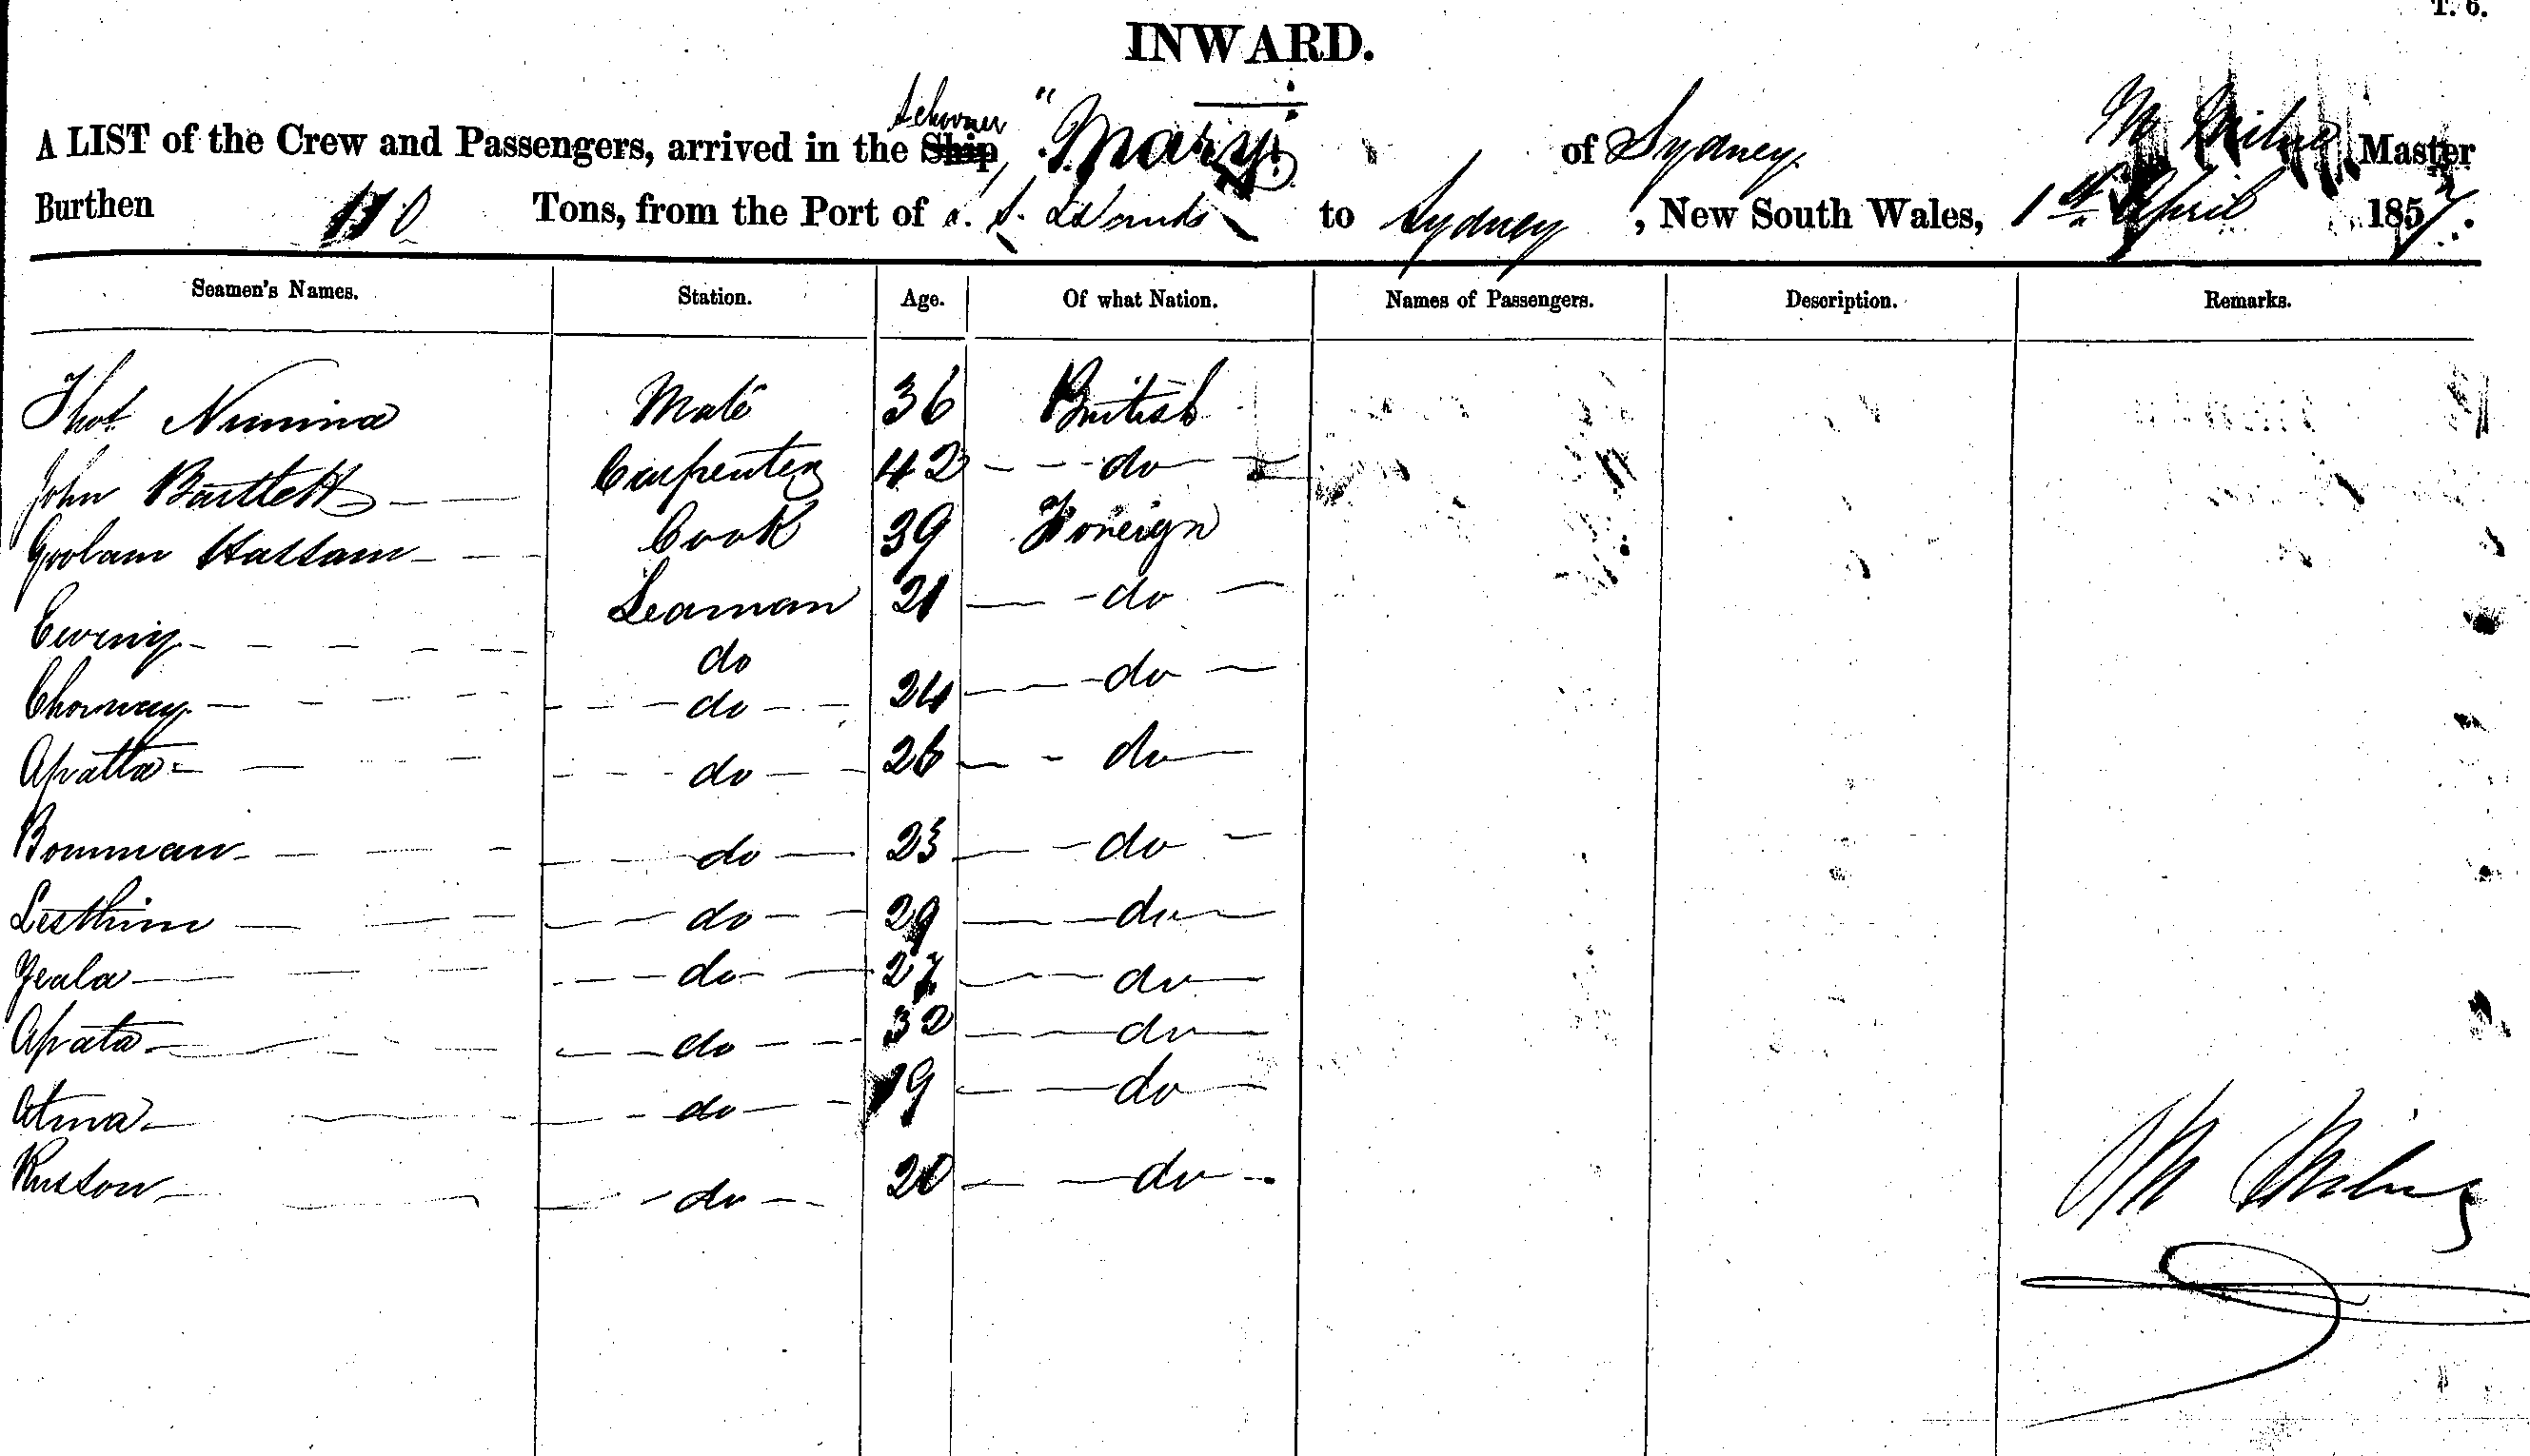 T. 6.
INWARD.
A LIST of the Crew and Passengers, arrived in the Ship Schooner "Mary" of Sydney M Milne Master
Burthen 110 Tons, from the Port of S. S. Islands to Sydney, New South Wales, 1st April 1857.
Seamen's Names. Station. Age. Of what Nation. Names of Passengers. Description. Remarks.
Thos Mate 36 British
John Bartlett Carpenter 42 do
Goolam Hassam Cook 39 Foreign
Seaman 21 do
do
do 24 do
Apatta do 26 do
Bowman do 23 do
Lesthim do 29 do
Yeala do 27 do
Apata do 32 do
Atma do 19 do
Russow do 20 do
M Milne